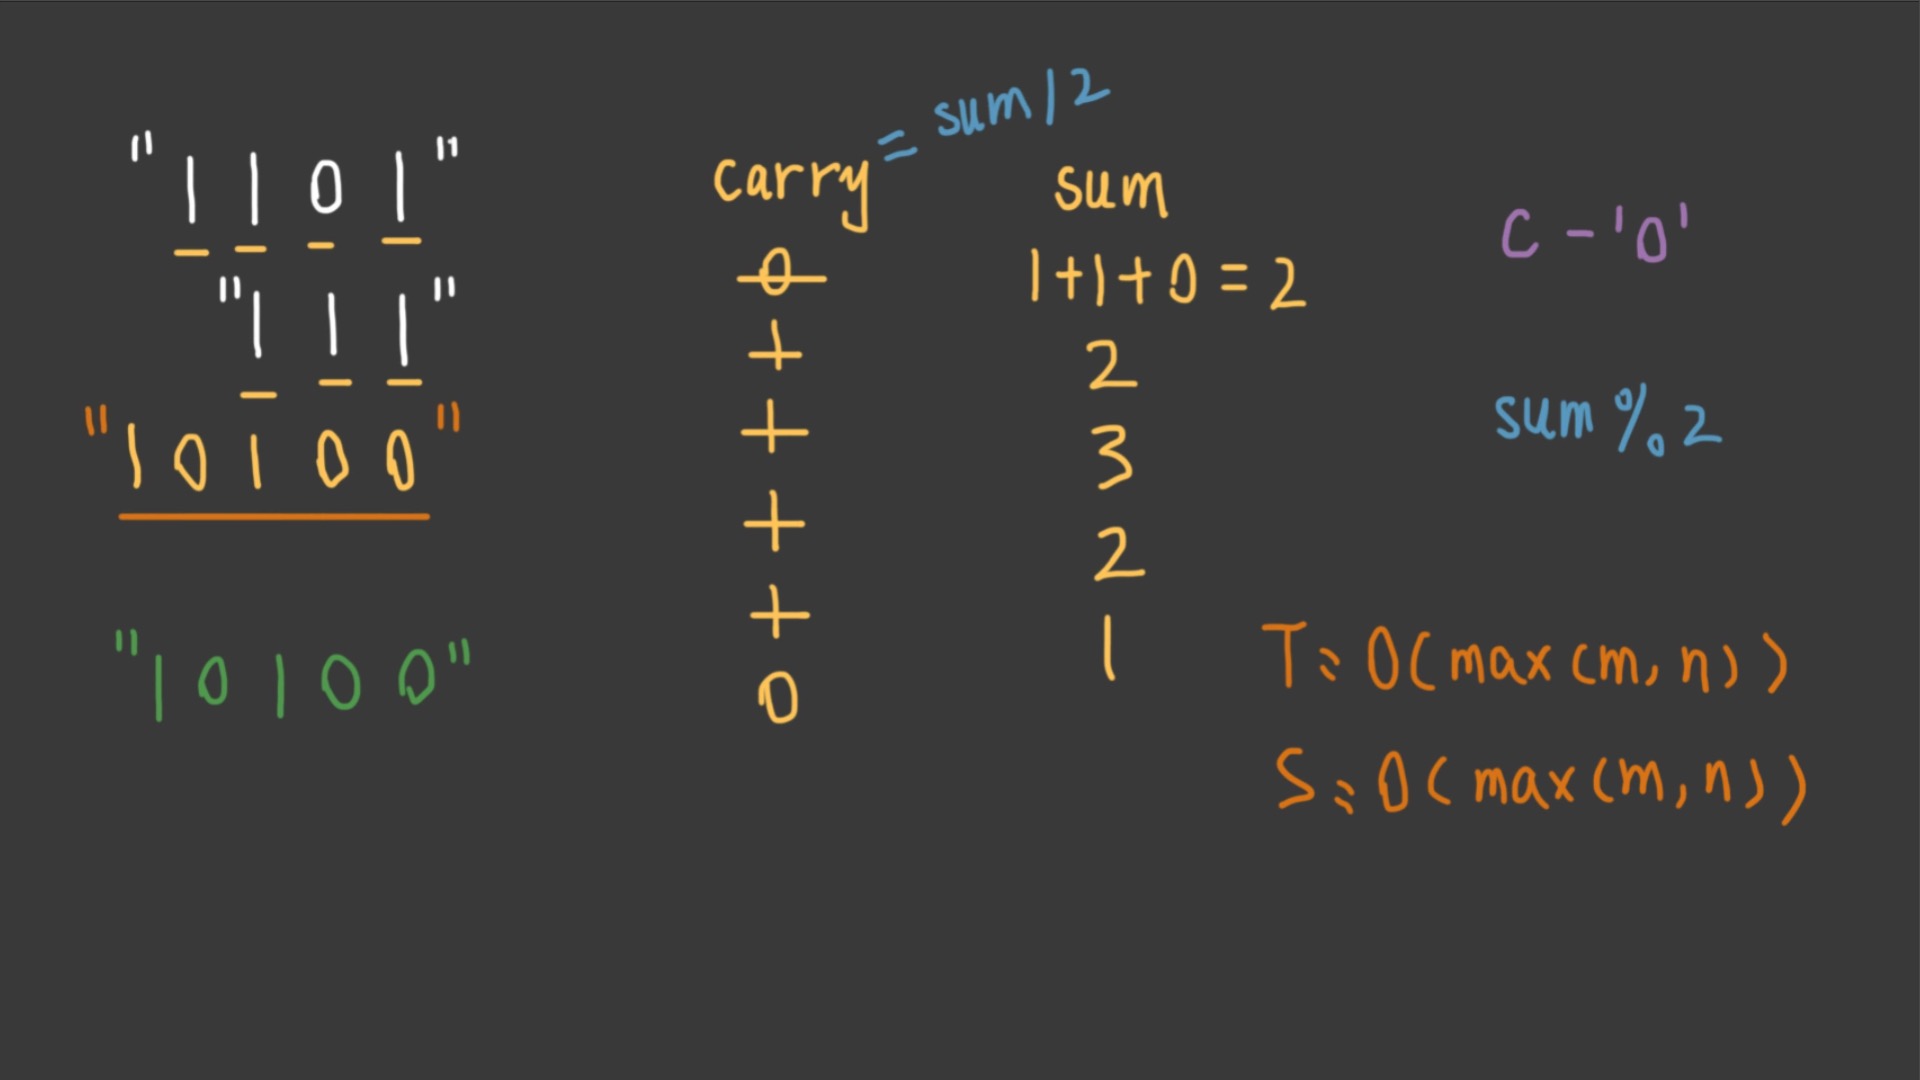 "1101"
"111"
"10100"
"10100"
carry = sum/2
0
1
1
1
1
0
sum
1+1+0=2
2
3
2
1
C-'0'
sum%2
T: O(max(m,n))
S: O(max(m,n))